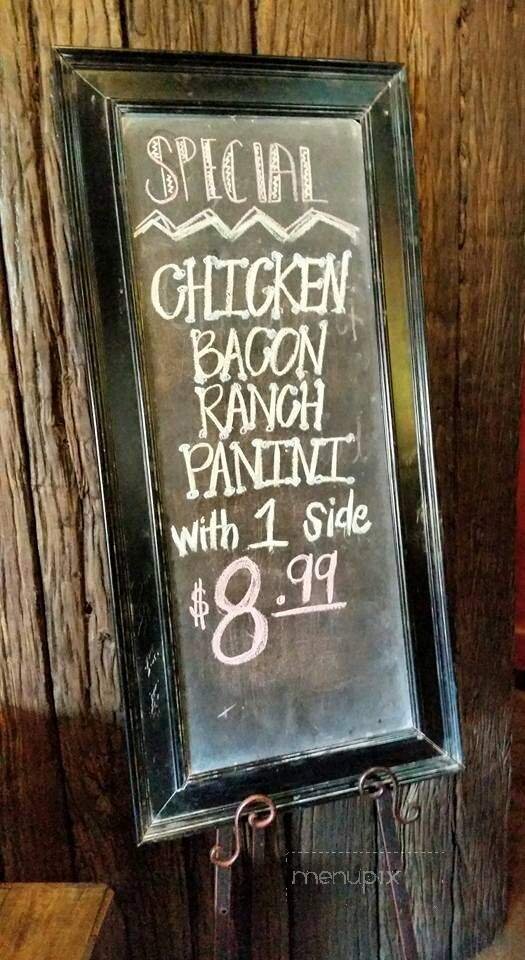 SPECIAL
CHICKEN
BACON
RANCH
PANINI
with 1 side
$8.99
menupix